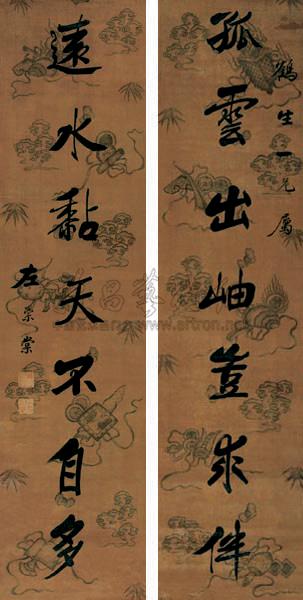 鹤生一兄属
孤雲出岫豈求伴
遠水黏天不自多
左宗棠
www.artron.net